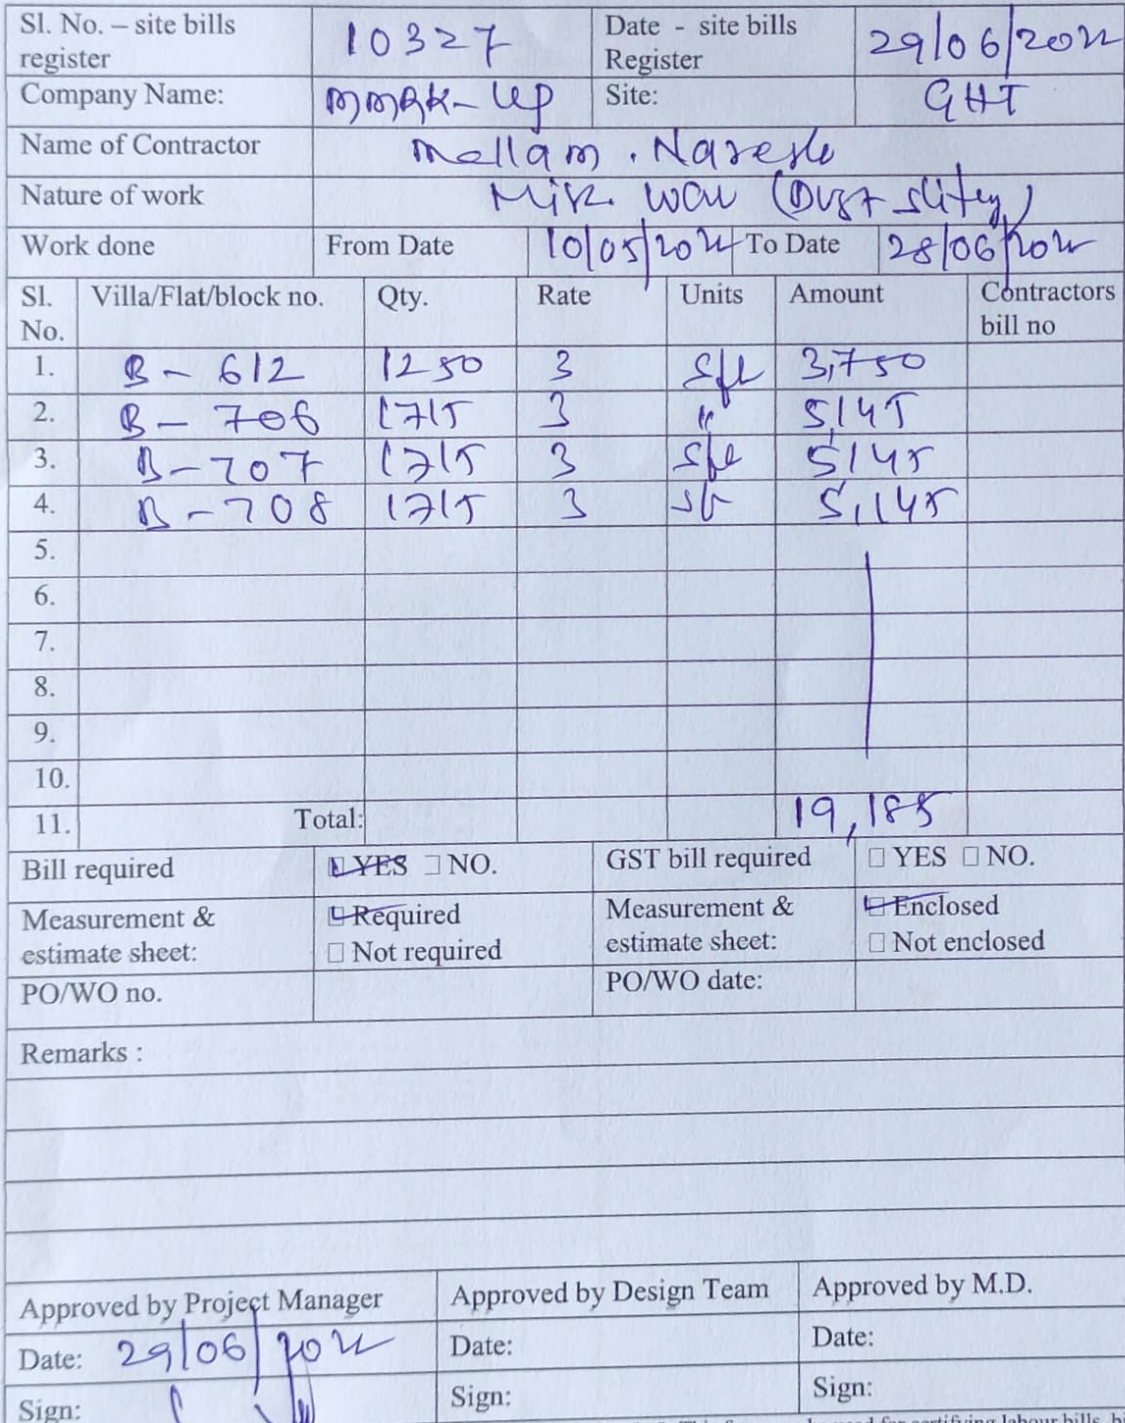 Sl. No. – site bills register 10327 Date - site bills Register 29/06/2022
Company Name: MMRK-LLP Site: GHT
Name of Contractor Mellam . Naresh
Nature of work Misc. (Dust
Work done From Date 10/05/2022 To Date 28/06/2022
Sl. No. Villa/Flat/block no. Qty. Rate Units Amount Contractors bill no
1. B - 612 1250 3 sft 3,750
2. B - 706 1715 3 " 5,145
3. B - 707 1715 3 sft 5,145
4. B - 708 1715 3 sft 5,145
5.
6.
7.
8.
9.
10.
11. Total: 19,185
Bill required YES NO. GST bill required YES NO.
Measurement & estimate sheet: Required Not required Measurement & estimate sheet: Enclosed Not enclosed
PO/WO no. PO/WO date:
Remarks :
Approved by Project Manager Approved by Design Team Approved by M.D.
Date: 29/06/2022 Date: Date:
Sign: Sign: Sign: